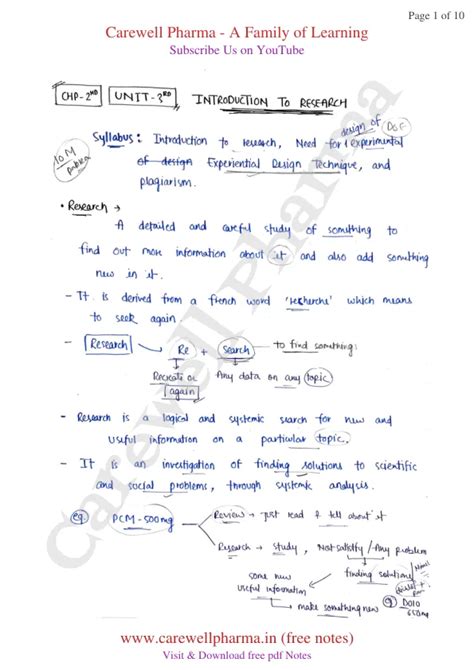 Page 1 of 10
Carewell Pharma - A Family of Learning
Subscribe Us on YouTube
CHP-2ND UNIT-3RD INTRODUCTION TO RESEARCH
design of DOE
Syllabus: Introduction to research, Need for (experimental
of design Experiential Design Technique, and
plagiarism.
10 M
• Research →
A detailed and careful study of something to
find out more information about it and also add something
new in it.
- It is derived from a french word 'recherche' which means
to seek again.
- Research → Re + Search → to find something
Recreate or Any data on any topic
again
- Research is a logical and systemic search for new and
useful information on a particular topic.
- It is an investigation of finding solutions to scientific
and social problems, through systemic analysis.
eg. PCM-500mg
Review → Just read & tell about it
Research → study, Not satisfy / Any problem
finding solutions
some new
useful information
→ make something new
DOLO
650mg
Carewell Pharma
www.carewellpharma.in (free notes)
Visit & Download free pdf Notes